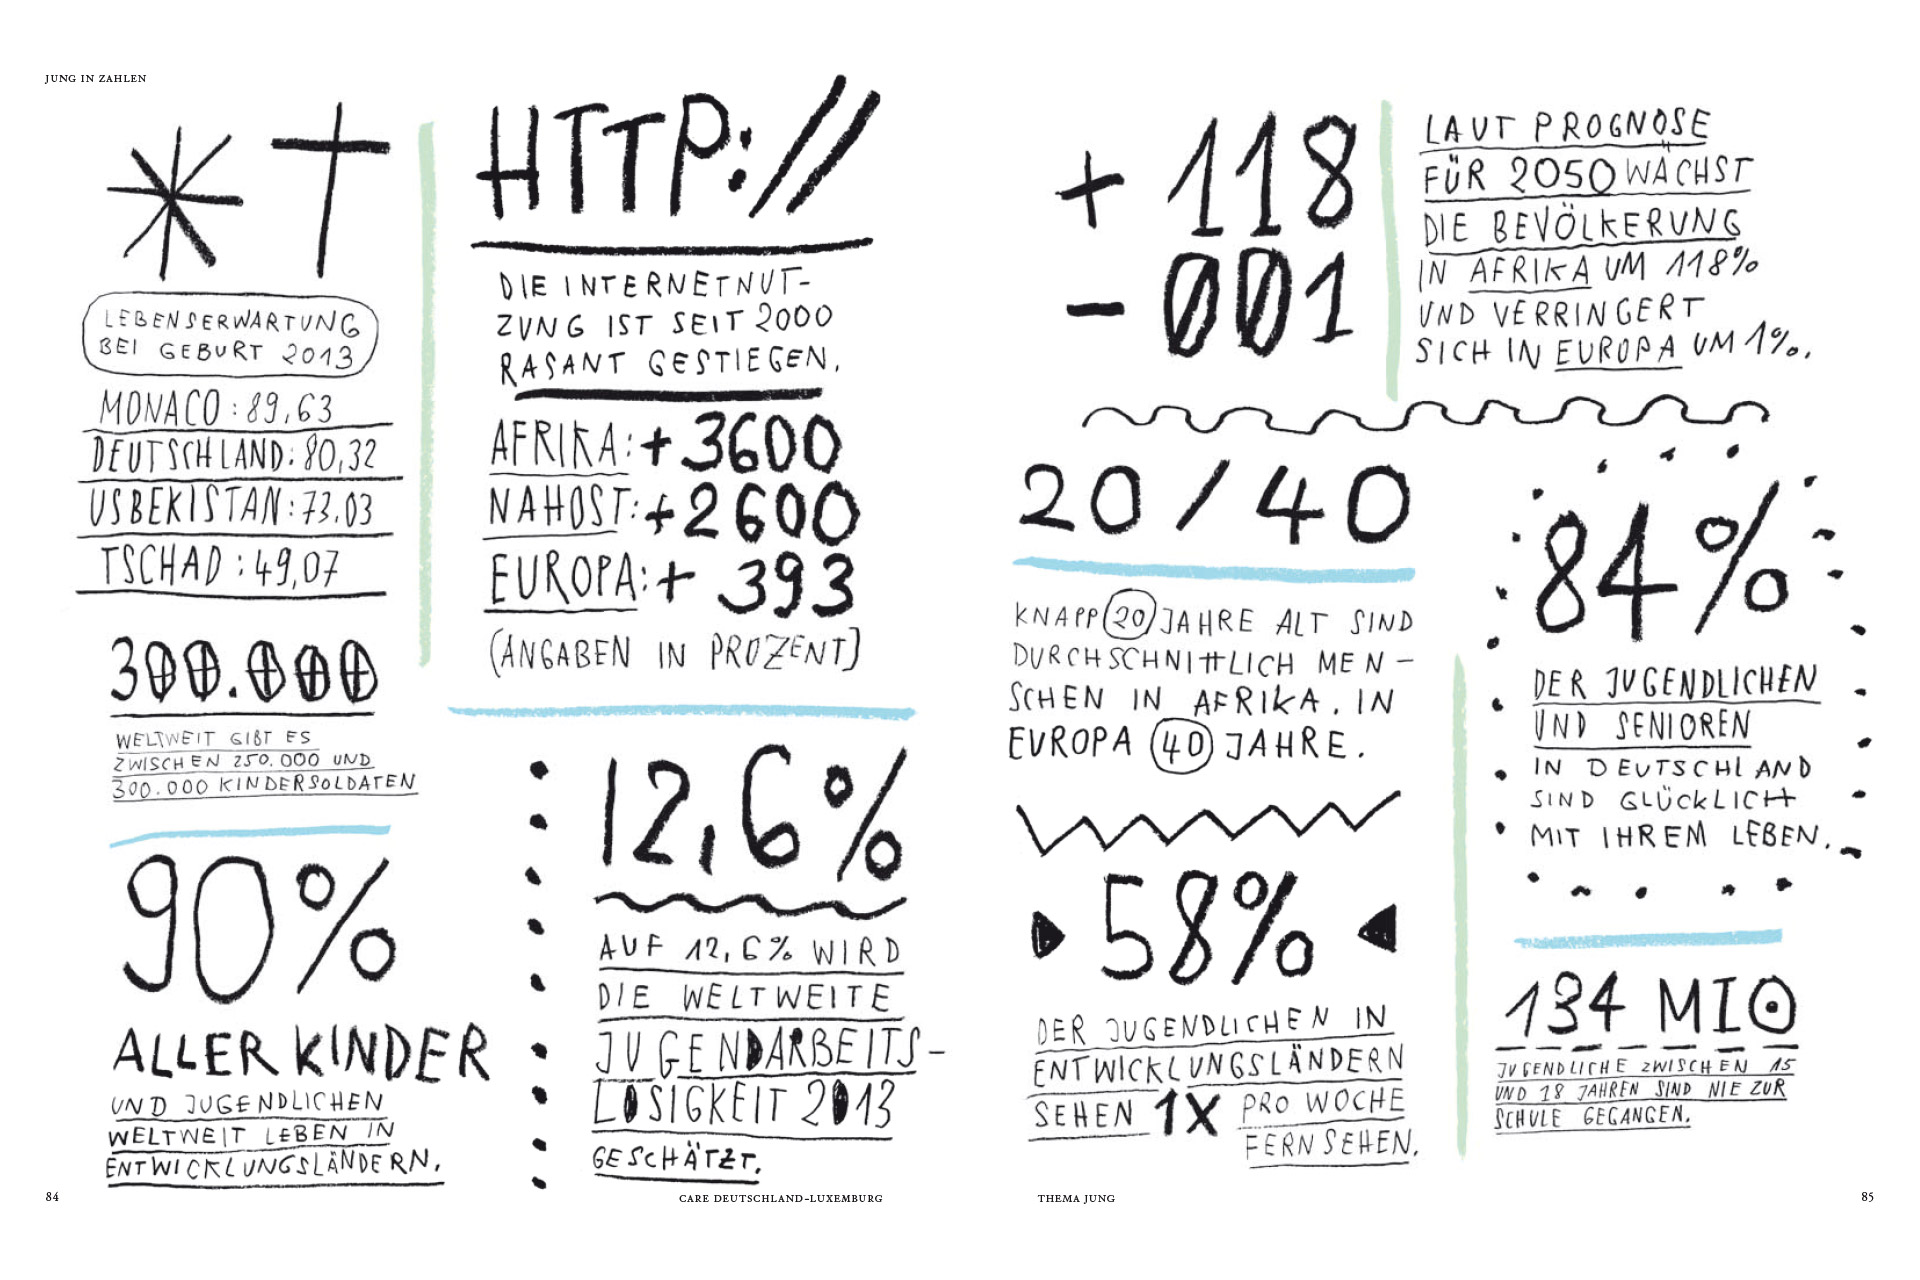 JUNG IN ZAHLEN
* †
LEBENSERWARTUNG
BEI GEBURT 2013
MONACO: 89,63
DEUTSCHLAND: 80,32
USBEKISTAN: 73,03
TSCHAD: 49,07
300.000
WELTWEIT GIBT ES
ZWISCHEN 250.000 UND
300.000 KINDERSOLDATEN
90%
ALLER KINDER
UND JUGENDLICHEN
WELTWEIT LEBEN IN
ENTWICKLUNGSLÄNDERN.
HTTP://
DIE INTERNETNUT-
ZUNG IST SEIT 2000
RASANT GESTIEGEN.
AFRIKA: + 3600
NAHOST: + 2600
EUROPA: + 393
(ANGABEN IN PROZENT)
12,6%
AUF 12,6% WIRD
DIE WELTWEITE
JUGENDARBEITS-
LOSIGKEIT 2013
GESCHÄTZT.
84
CARE DEUTSCHLAND-LUXEMBURG
+ 118
- 001
LAUT PROGNOSE
FÜR 2050 WÄCHST
DIE BEVÖLKERUNG
IN AFRIKA UM 118%
UND VERRINGERT
SICH IN EUROPA UM 1%.
20/40
KNAPP 20 JAHRE ALT SIND
DURCHSCHNITTLICH MEN-
SCHEN IN AFRIKA. IN
EUROPA 40 JAHRE.
58%
DER JUGENDLICHEN IN
ENTWICKLUNGSLÄNDERN
SEHEN 1X PRO WOCHE
FERNSEHEN.
84%
DER JUGENDLICHEN
UND SENIOREN
IN DEUTSCHLAND
SIND GLÜCKLICH
MIT IHREM LEBEN.
134 MIO
JUGENDLICHE ZWISCHEN 15
UND 18 JAHREN SIND NIE ZUR
SCHULE GEGANGEN.
THEMA JUNG
85